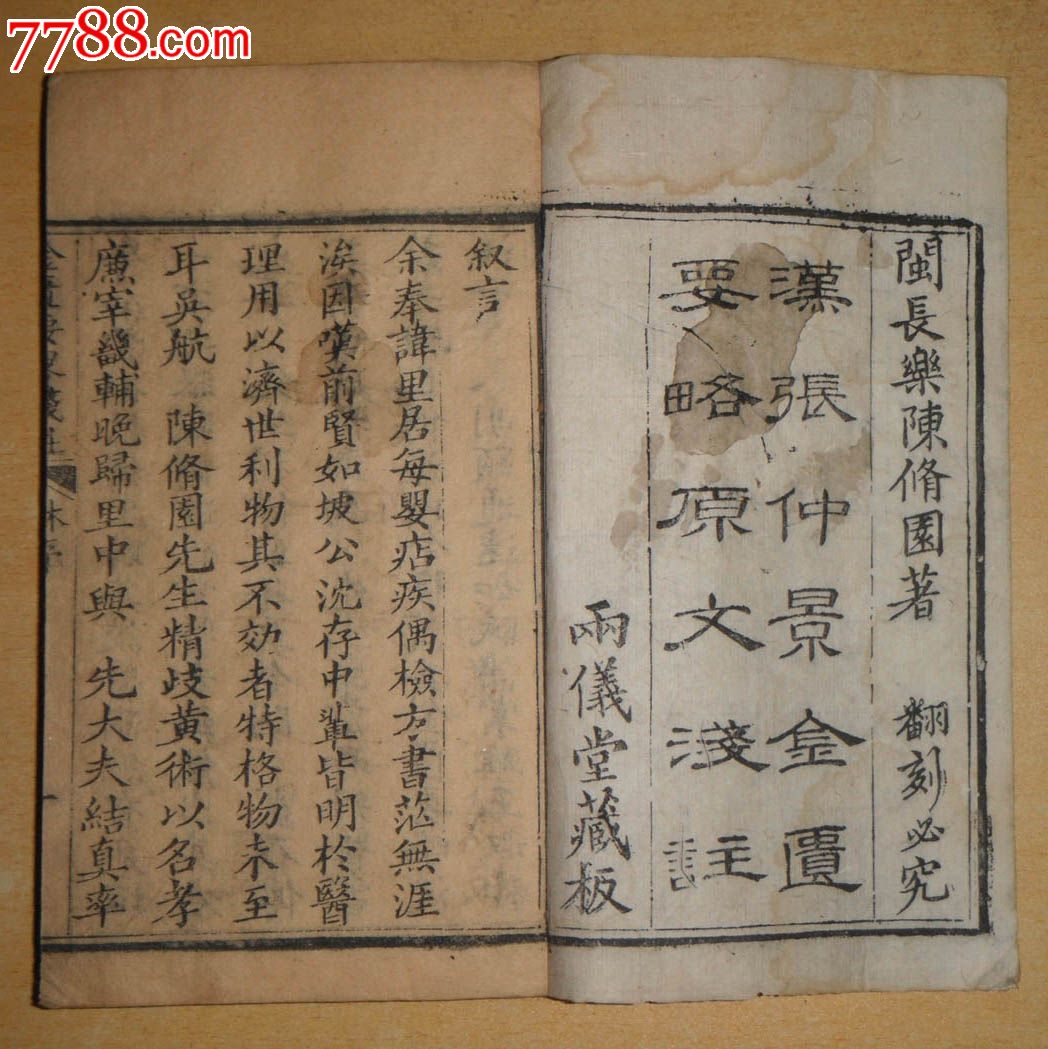 7788.com
閩長樂陳脩園著 翻刻必究
漢張仲景金匱
要略原文淺註
兩儀堂藏板
叙言
余奉諱里居每嬰痁疾偶檢方書茫無涯
涘因嘆前賢如坡公沈存中輩皆明於醫
理用以濟世利物其不効者特格物未至
耳吳航 陳脩園先生精歧黃術以名孝
廉宰畿輔晚歸里中與 先大夫結真率
金匱要畧淺註 林序 一